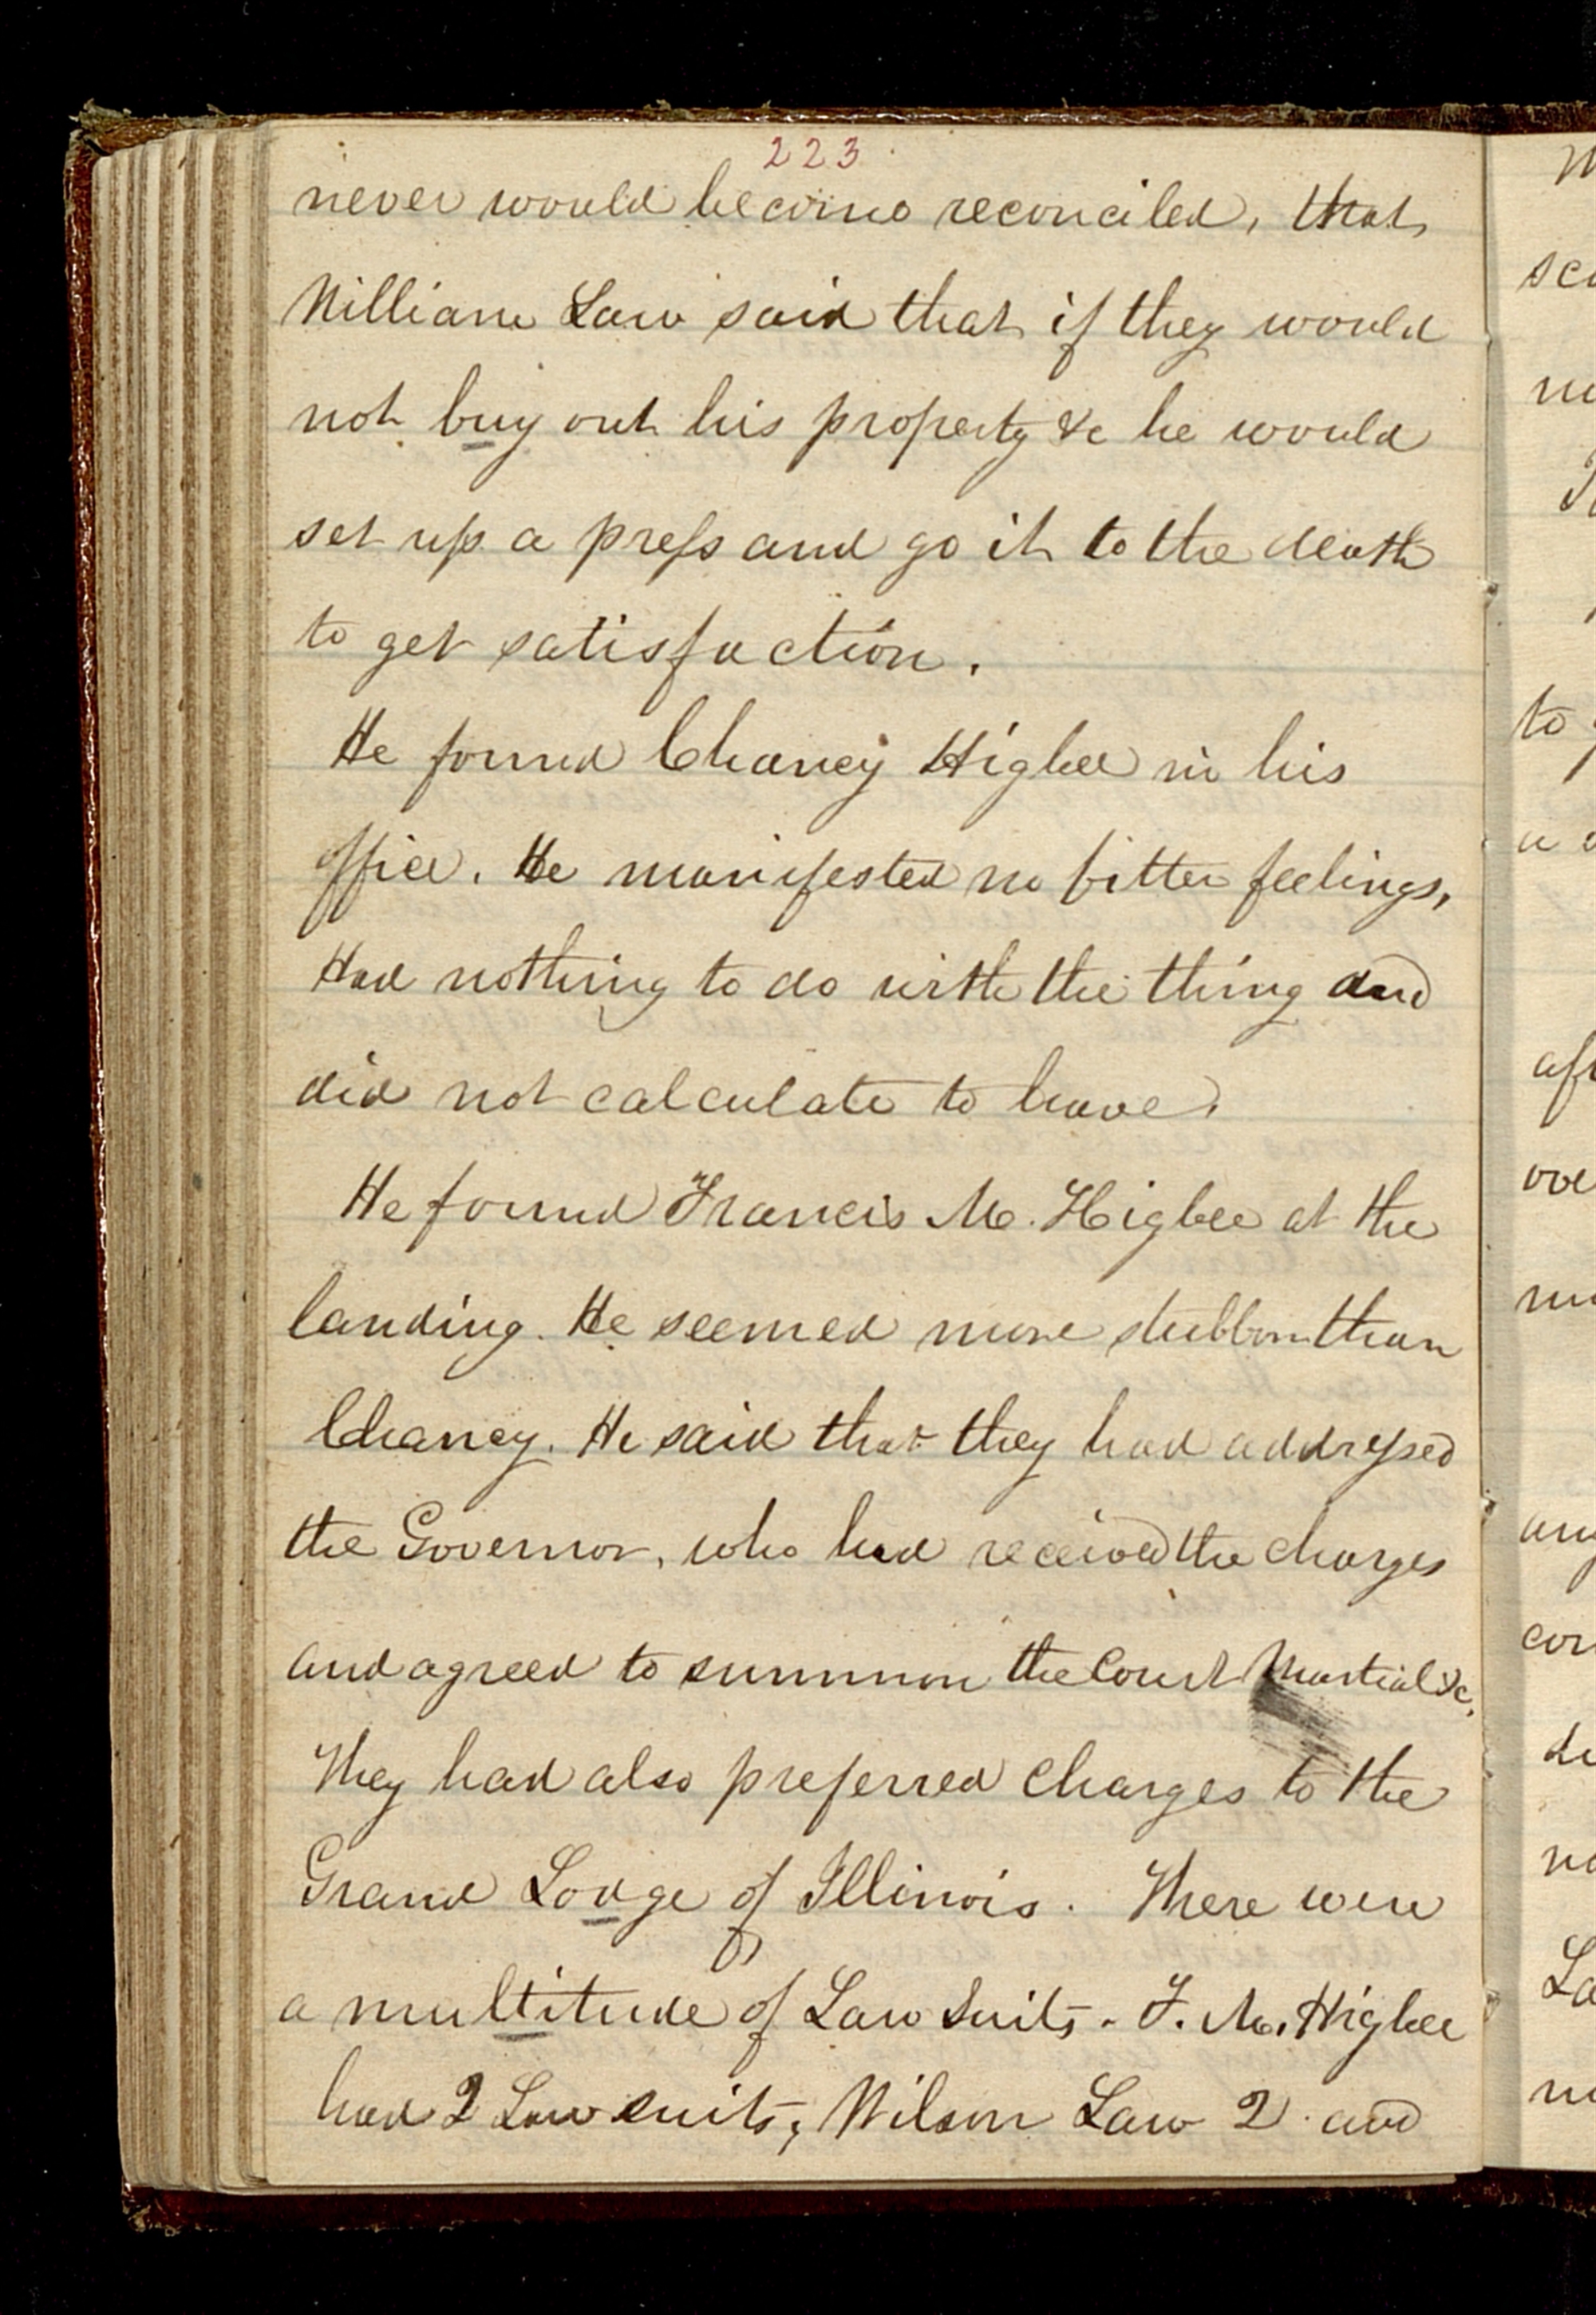 223
never would become reconciled, that
William Law said that if they would
not buy out his property &c he would
set up a press and go it to the death
to get satisfaction.
He found Chancy Higbee in his
office. He manifested no bitter feelings,
Had nothing to do with the thing and
did not calculate to leave.
He found Francis M. Higbee at the
landing. He seemed more stubborn than
Chancy. He said that they had addressed
the Governor, who had received the charges
and agreed to summon the Court Martial &c.
They had also preferred charges to the
Grand Lodge of Illinois. There were
a multitude of Law Suits. F. M. Higbee
had 2 Law suits, Wilson Law 2 and